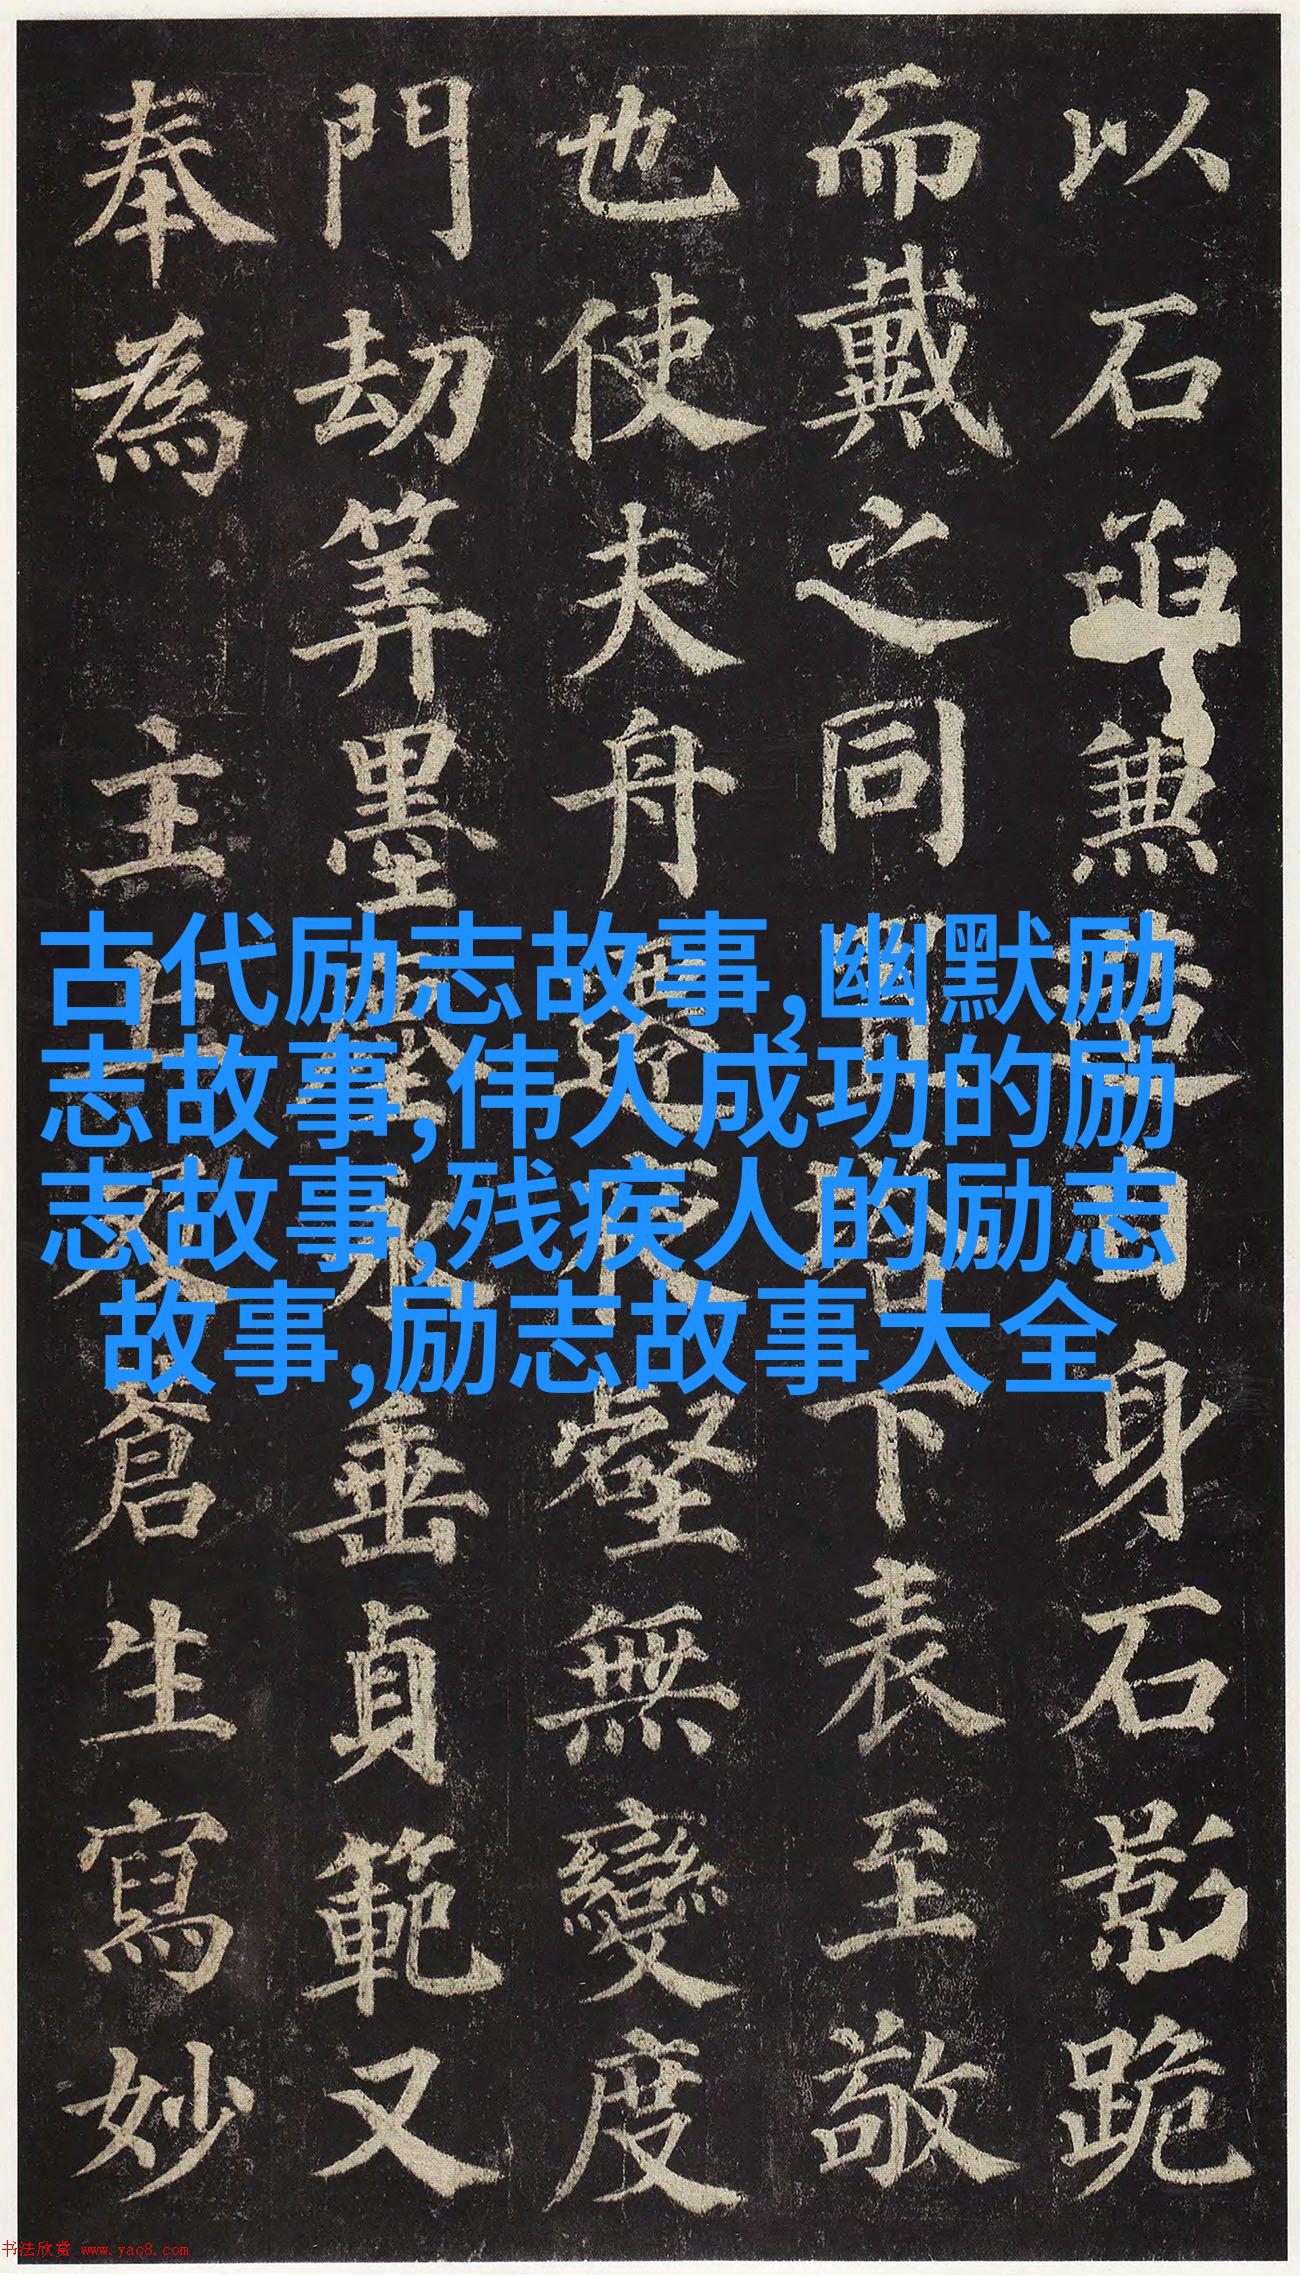 以石函兼造自身石影跪
而戴之同置塔下表至敬
也使夫舟遷夜壑無變度
門劫筭墨塵永垂貞範又
奉為主上及蒼生寫妙
古代励志故事,幽默励
志故事,伟人成功的励
志故事,残疾人的励志
故事,励志故事大全
书法欣赏 www.yac8.com